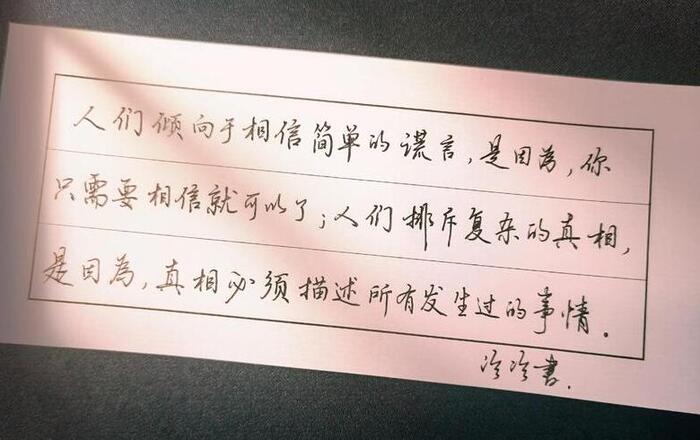 人们倾向于相信简单的谎言，是因为，你
只需要相信就可以了；人们排斥复杂的真相，
是因为，真相必须描述所有发生过的事情.
冷冷書.